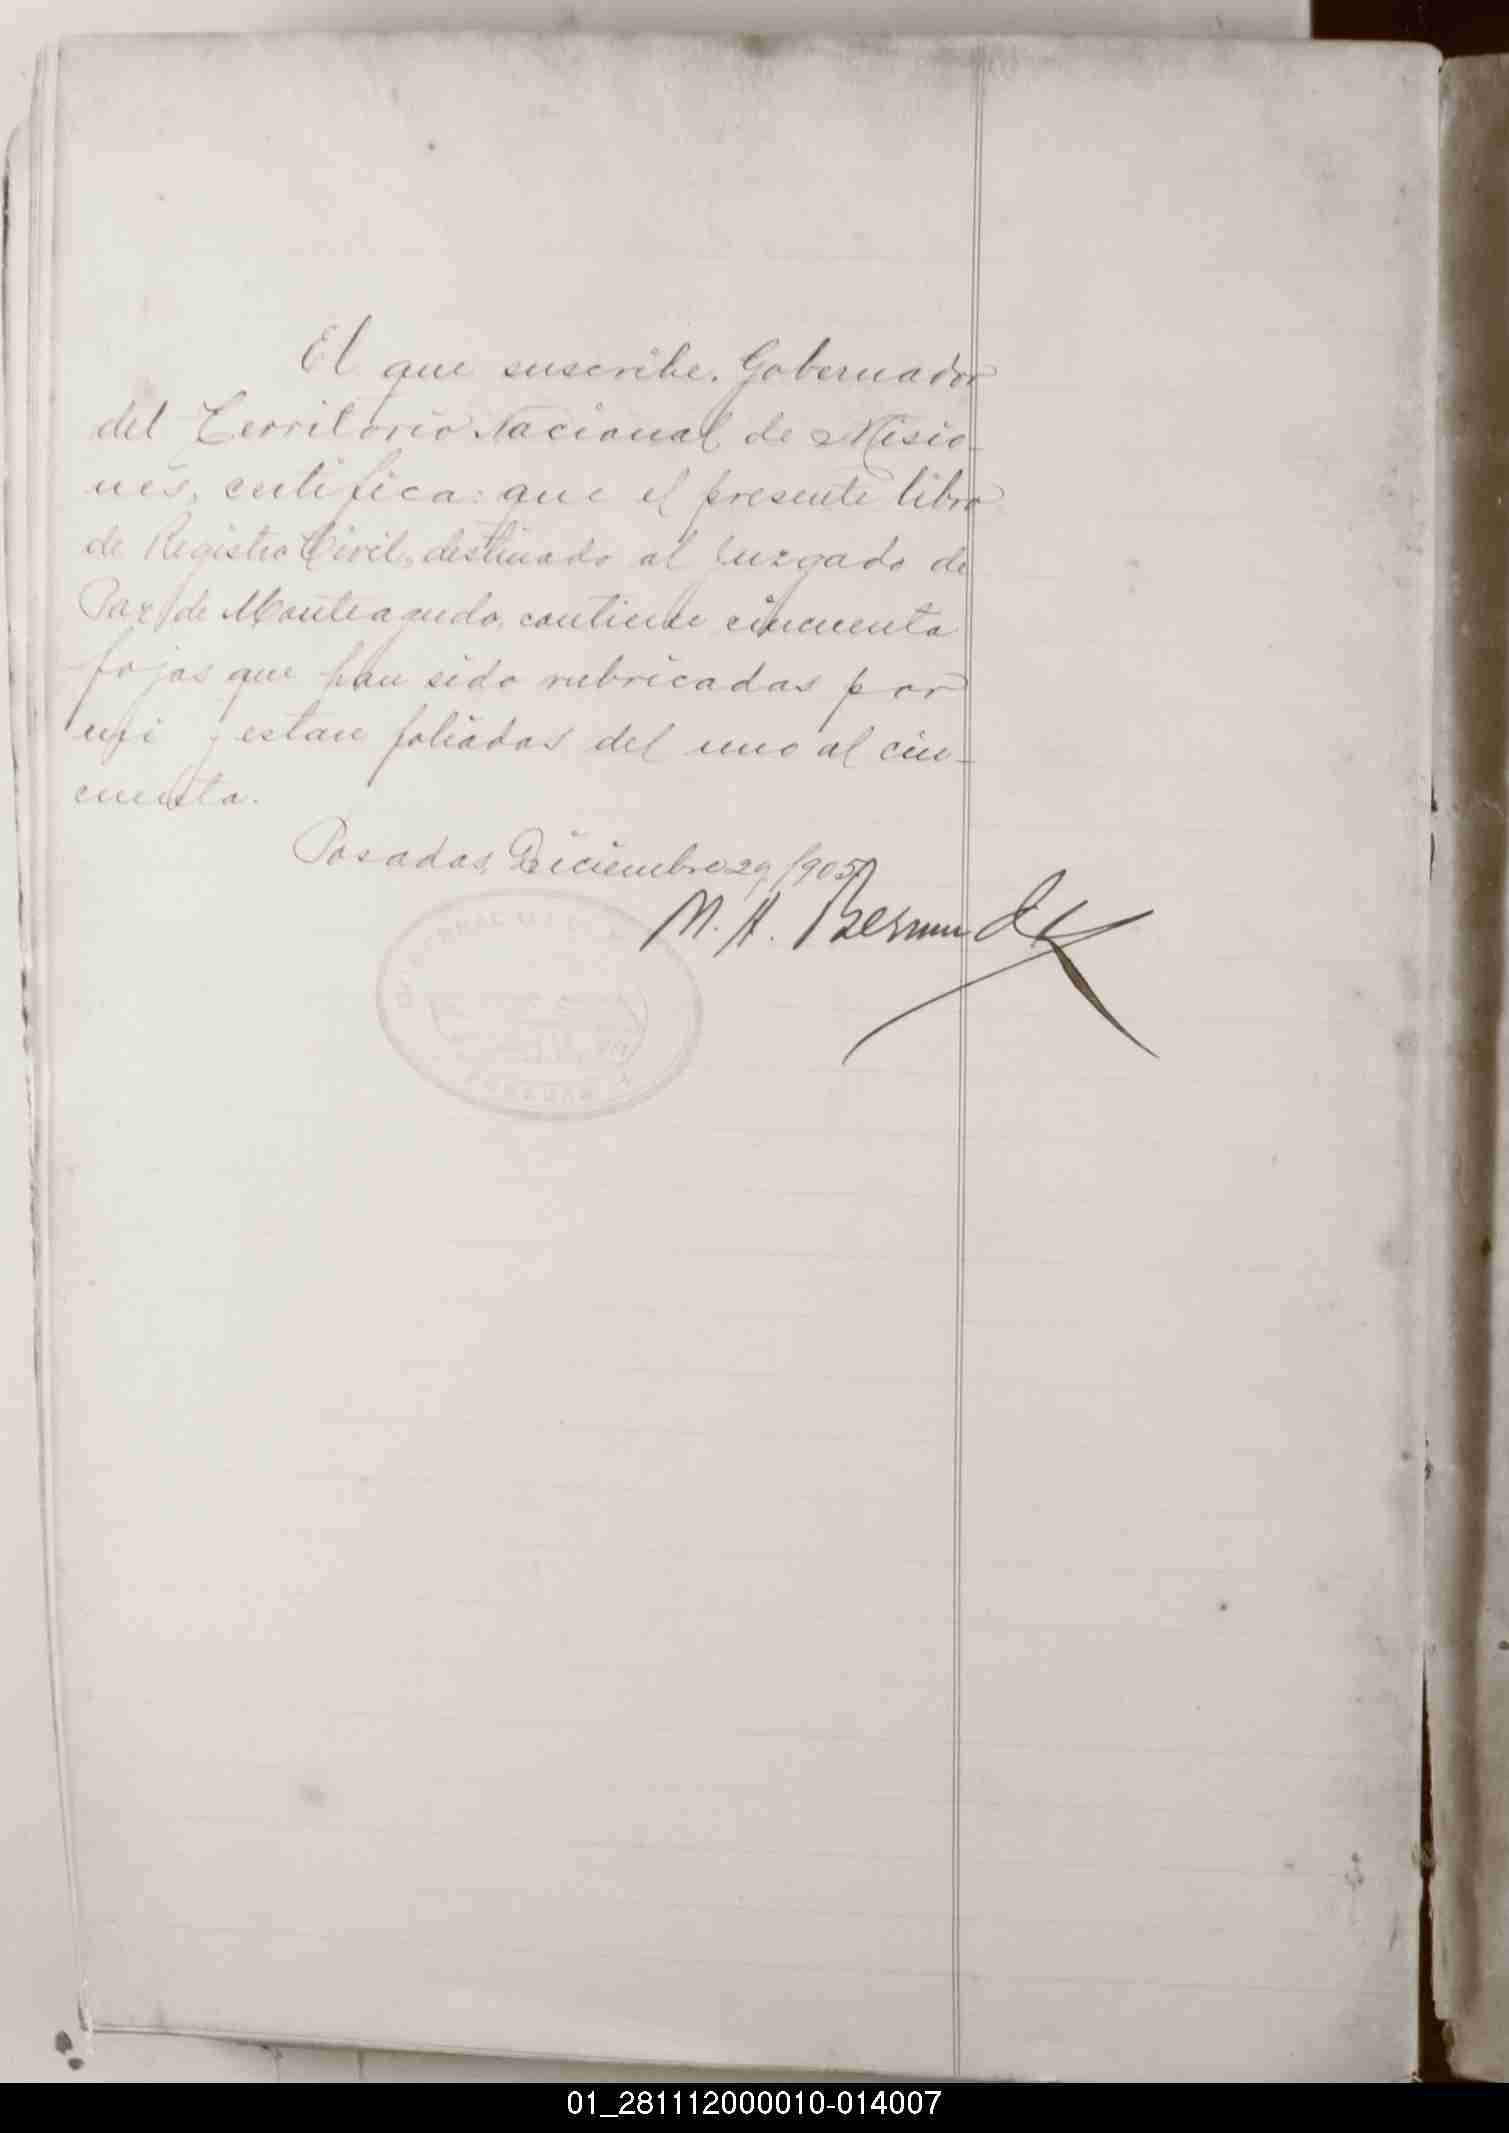 El que suscribe, Gobernador
del Territorio Nacional de Misio-
nes, certifica: que el presente libro
de Registro Civil, destinado al Juzgado de
Paz de Monteagudo, contiene cincuenta
fojas que han sido rubricadas por
mi y estan foliadas del uno al cin-
cuenta.
Posadas, Diciembre 29/905
M. A. Bermudez
01_281112000010-014007